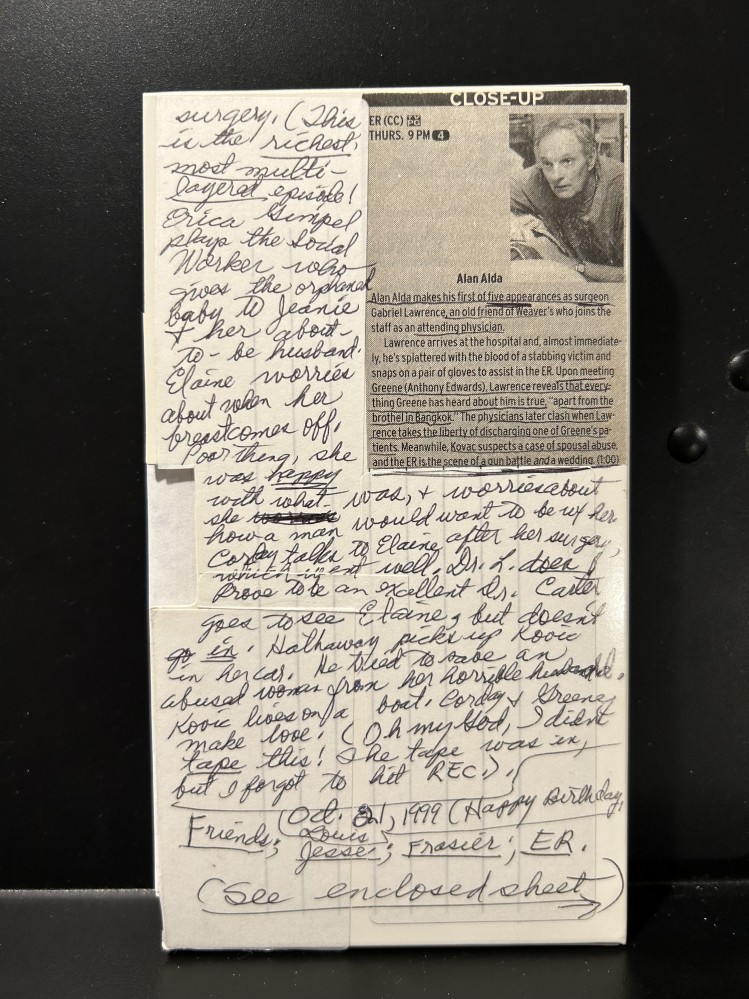 surgery. (This
is the richest,
most multi-
layered episode!
Erica Gimpel
plays the Social
Worker who
gives the orphaned
baby to Jeanie
& her about-
to-be husband.
Elaine worries
about when her
breast comes off.
Poor thing, she
was happy
with what
she was, & worries about
how a man would want to be w/ her
Corday talks to Elaine after her surgery,
which went well. Dr. L. does
prove to be an excellent Dr. Carter
goes to see Elaine, but doesn't
go in. Hathaway picks up Kovic
in her car. He tried to save an
abused woman from her horrible husband.
Kovic lives on a boat. Corday & Greene
make love. (Oh my God, I didn't
tape this! The tape was in,
but I forgot to hit REC.).
Oct. 21, 1999 (Happy Birthday,
Louis
Friends; Jesse; Frasier; ER.
(See enclosed sheet)
CLOSE-UP
ER (CC) TV PG
THURS. 9 PM 4
Alan Alda
Alan Alda makes his first of five appearances as surgeon
Gabriel Lawrence, an old friend of Weaver's who joins the
staff as an attending physician.
Lawrence arrives at the hospital and, almost immediate-
ly, he's splattered with the blood of a stabbing victim and
snaps on a pair of gloves to assist in the ER. Upon meeting
Greene (Anthony Edwards), Lawrence reveals that every-
thing Greene has heard about him is true, "apart from the
brothel in Bangkok." The physicians later clash when Law-
rence takes the liberty of discharging one of Greene's pa-
tients. Meanwhile, Kovac suspects a case of spousal abuse,
and the ER is the scene of a gun battle and a wedding. (1:00)